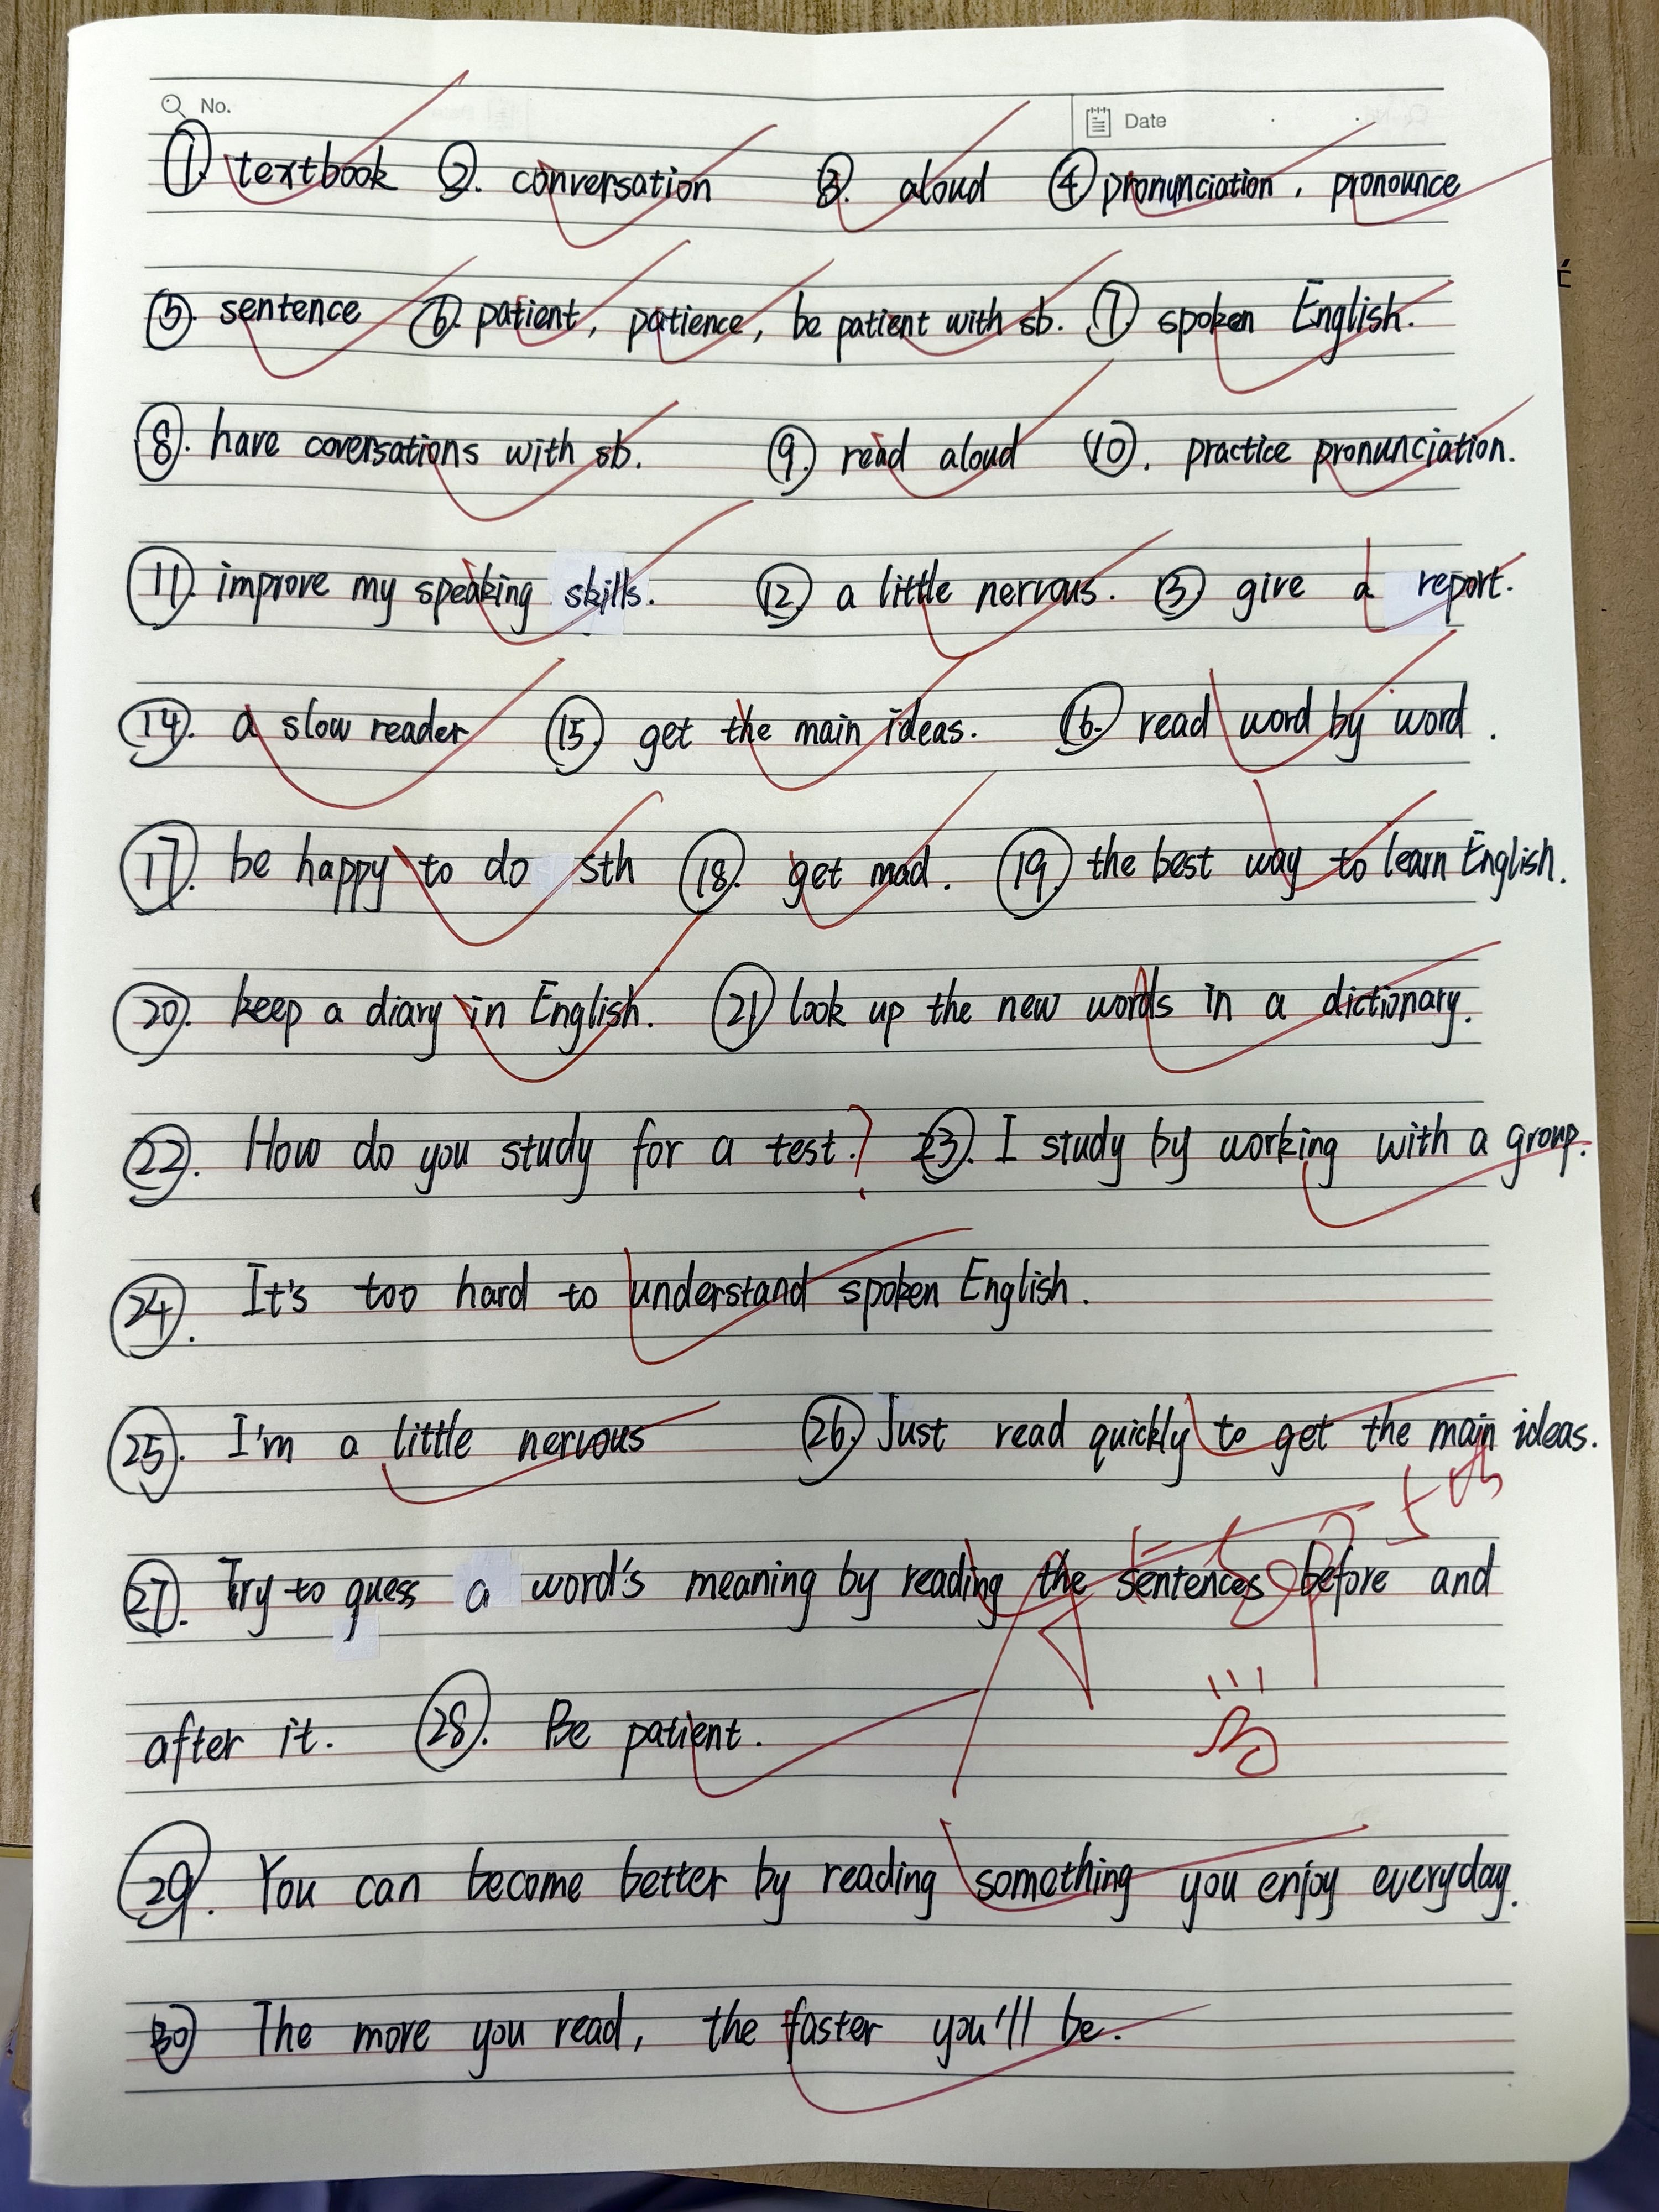 No. Date
①. textbook ②. conversation ③. aloud ④ pronunciation, pronounce
⑤. sentence ⑥. patient, patience, be patient with sb. ⑦ spoken English.
⑧. have coversations with sb. ⑨. read aloud ⑩. practice pronunciation.
⑪. improve my speaking skills. ⑫ a little nervous. ⑬ give a report.
⑭. a slow reader ⑮. get the main ideas. ⑯. read word by word.
⑰. be happy to do sth ⑱. get mad. ⑲. the best way to learn English.
⑳. keep a diary in English. ㉑ look up the new words in a dictionary.
㉒. How do you study for a test.? ㉓. I study by working with a group.
㉔. It's too hard to understand spoken English.
㉕. I'm a little nervous ㉖. Just read quickly to get the main ideas.
㉗. Try to guess a word's meaning by reading the sentences before and
after it. ㉘. Be patient.
㉙. You can become better by reading something you enjoy everyday.
㉚ The more you read, the faster you'll be.